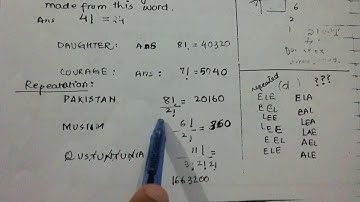 made from this word.
Ans 4! = 24
DAUGHTER: Ans 8! = 40320
COURAGE: Ans: 7! = 5040
Repeatation:
PAKISTAN 8!/2! = 20160
MUSLIM 6!/2! = 360
11!/3!2!2!
1663200
7!
6
2
repeated (d) ???
ELE ELA
EEL EAL
LEE LEA
LEE LAE
EEL AEL
ELE ALE